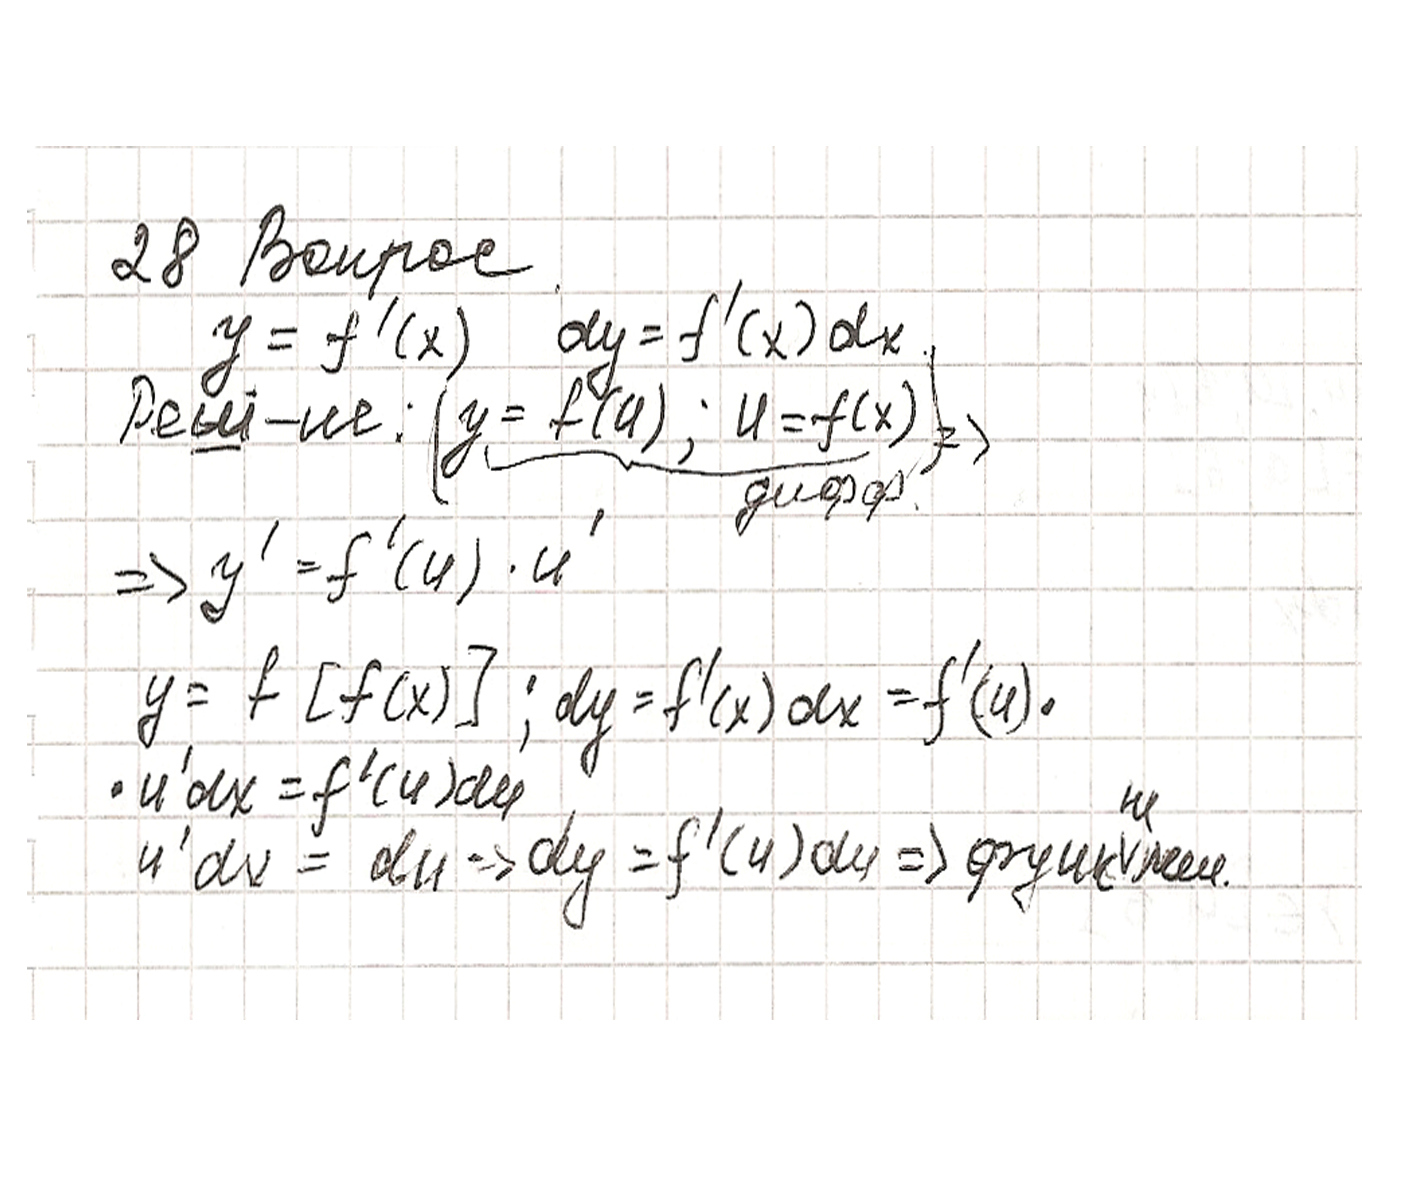 28 Вопрос
y = f'(x) dy = f'(x) dx
Реш-ие: (y = f(u); u = f(x)) =>
дифф.
=> y' = f'(u) · u'
y = f [f(x)]; dy = f'(x) dx = f'(u) ·
· u'dx = f'(u) du
u'dx = du => dy = f'(u) du => функ не